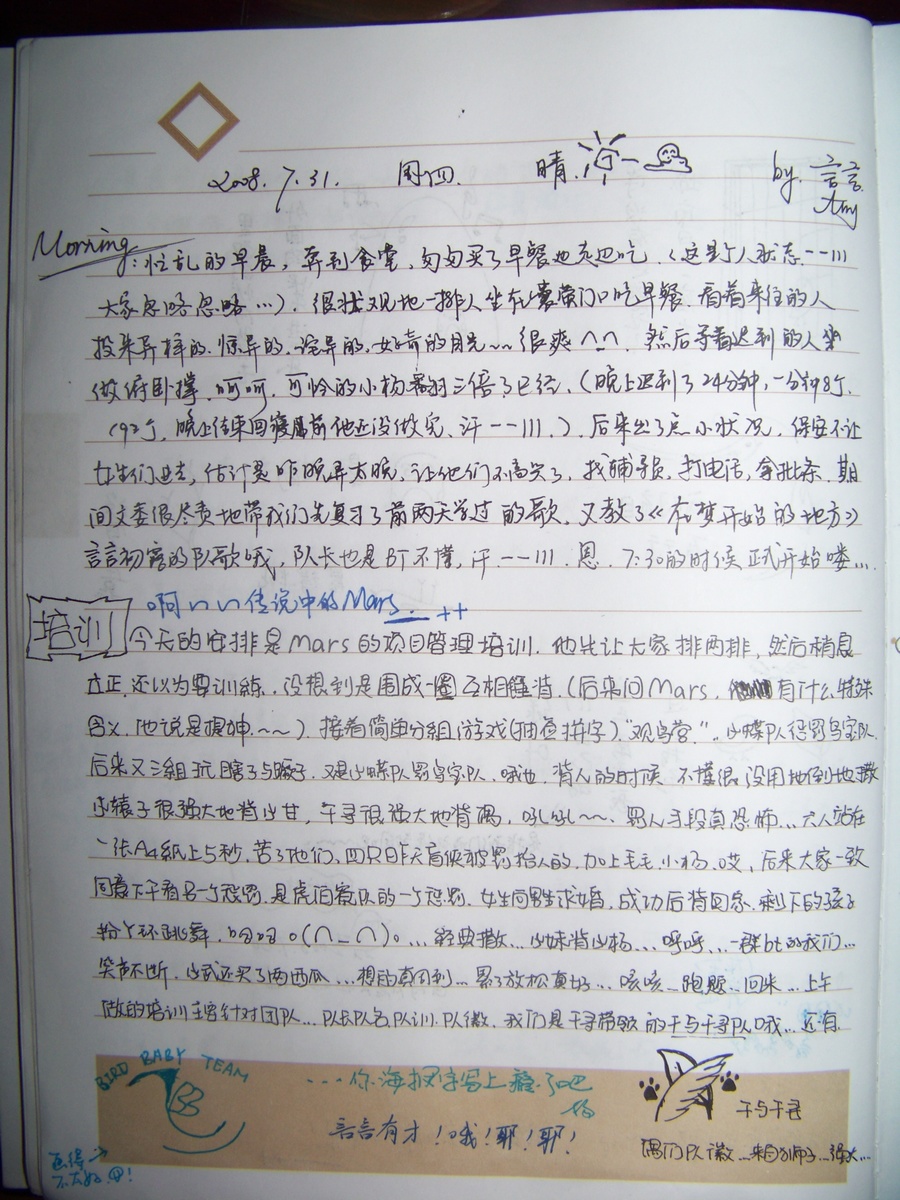 2008. 7. 31. 周四. 晴. by. 言言
Amy
Morning: 忙乱的早晨, 奔到食堂, 匆匆买了早餐边走边吃. (这是个人状态---111
大家忽略忽略…). 很壮观地一排人坐在 门口吃早餐. 看着来往的人
投来异样的. 惊异的. 诧异的. 好奇的目光~~ 很爽^_^. 然后等着迟到的人来
做俯卧撑. 呵呵. 可怜的小杨 翻三倍了已经. (晚上迟到了24分钟, 一分钟8个.
192个, 晚上结束回寝 前他还没做完. 汗---111. ). 后来出了点小状况, 保安不让
女生们进去, 估计是昨晚弄太晚, 让他们不高兴了. 找辅导员, 打电话, 拿批条. 期
间文委很尽责地带我们先复习了前两天学过的歌. 又教了《在梦开始的地方》
言言初 的队歌哦, 队长也是BT不懂, 汗.---111. 恩. 7:30的时候正式开始喽…
啊 传说中的Mars ++
培训
今天的安排是Mars的项目管理培训. 他先让大家排两排, 然后稍息
立正. 还以为要训练. 没想到是围成一圈互相 . (后来问Mars, 有什么特殊
含义. 他说是提神.~~) 接着简单分组, 游戏(抽 拼字) "观鸟营". 队 罚鸟宝队.
后来又三组玩瞎子与瘸子. 又是 队罚鸟宝队. 哦也. 背人的时候 不懂很没用地倒地
小辕子很强大地背 , 千寻很强大地背偶, 吼吼~~. 罚人手段真恐怖… 六人站在
一张A4纸上5秒. 苦了他们. 四只昨天 被罚抬人的. 加上毛毛. 小杨. 哎, 后来大家一致
同意下午看另一个惩罚. 是 队的一个惩罚. 女生向男生求婚. 成功后背回来. 剩下的孩子
个环跳舞. o(∩_∩)o… 经典 … 背小杨… 呼呼.. 一群bt的我们…
笑声不断. 还买了两西瓜… 想的真周到… 累了放松真好… 咳咳. 跑题. 回来… 上午
做的培训主要针对团队… 队长队名. 队训. 队徽. 我们是千寻带领的千与千寻队哦… 还有.
BIRD BABY TEAM
…你 写上瘾了吧
言言有才! 哦! 耶! 耶!
千与千寻
偶们队徽… 来自 狮子… 强大…
画得
不太好